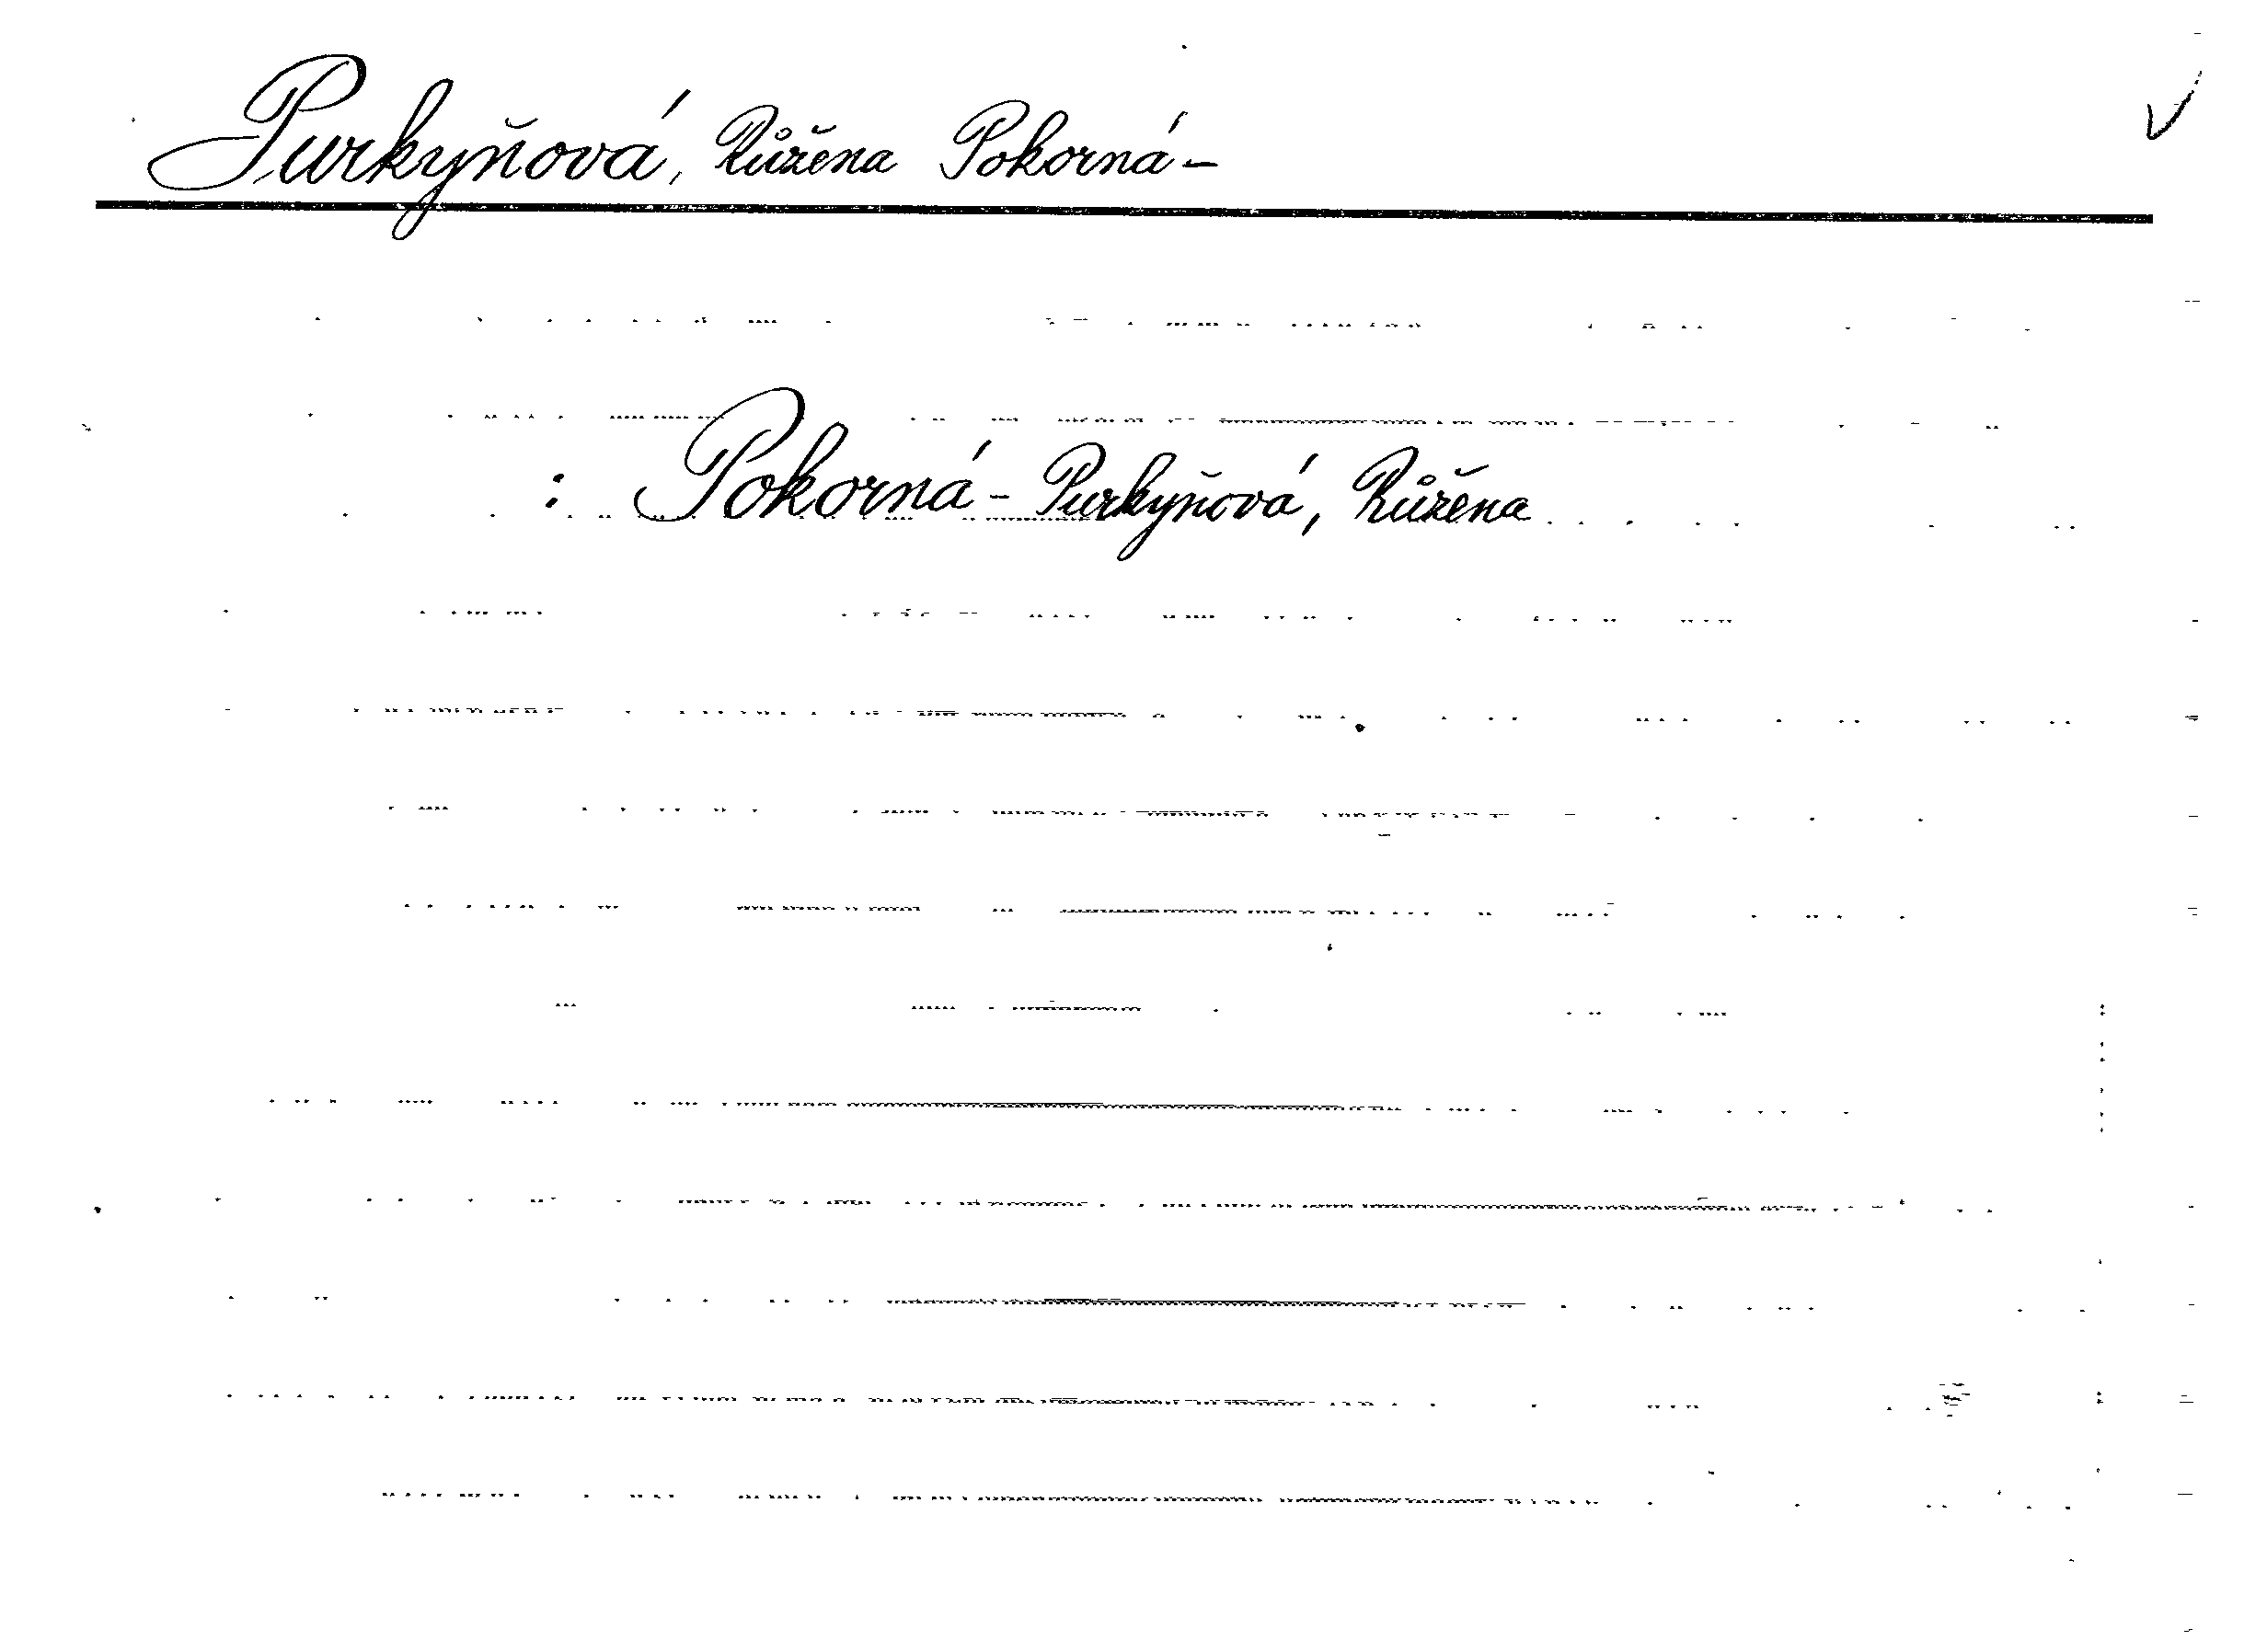 Purkyňová, Růžena Pokorná-
: Pokorná-Purkyňová, Růžena